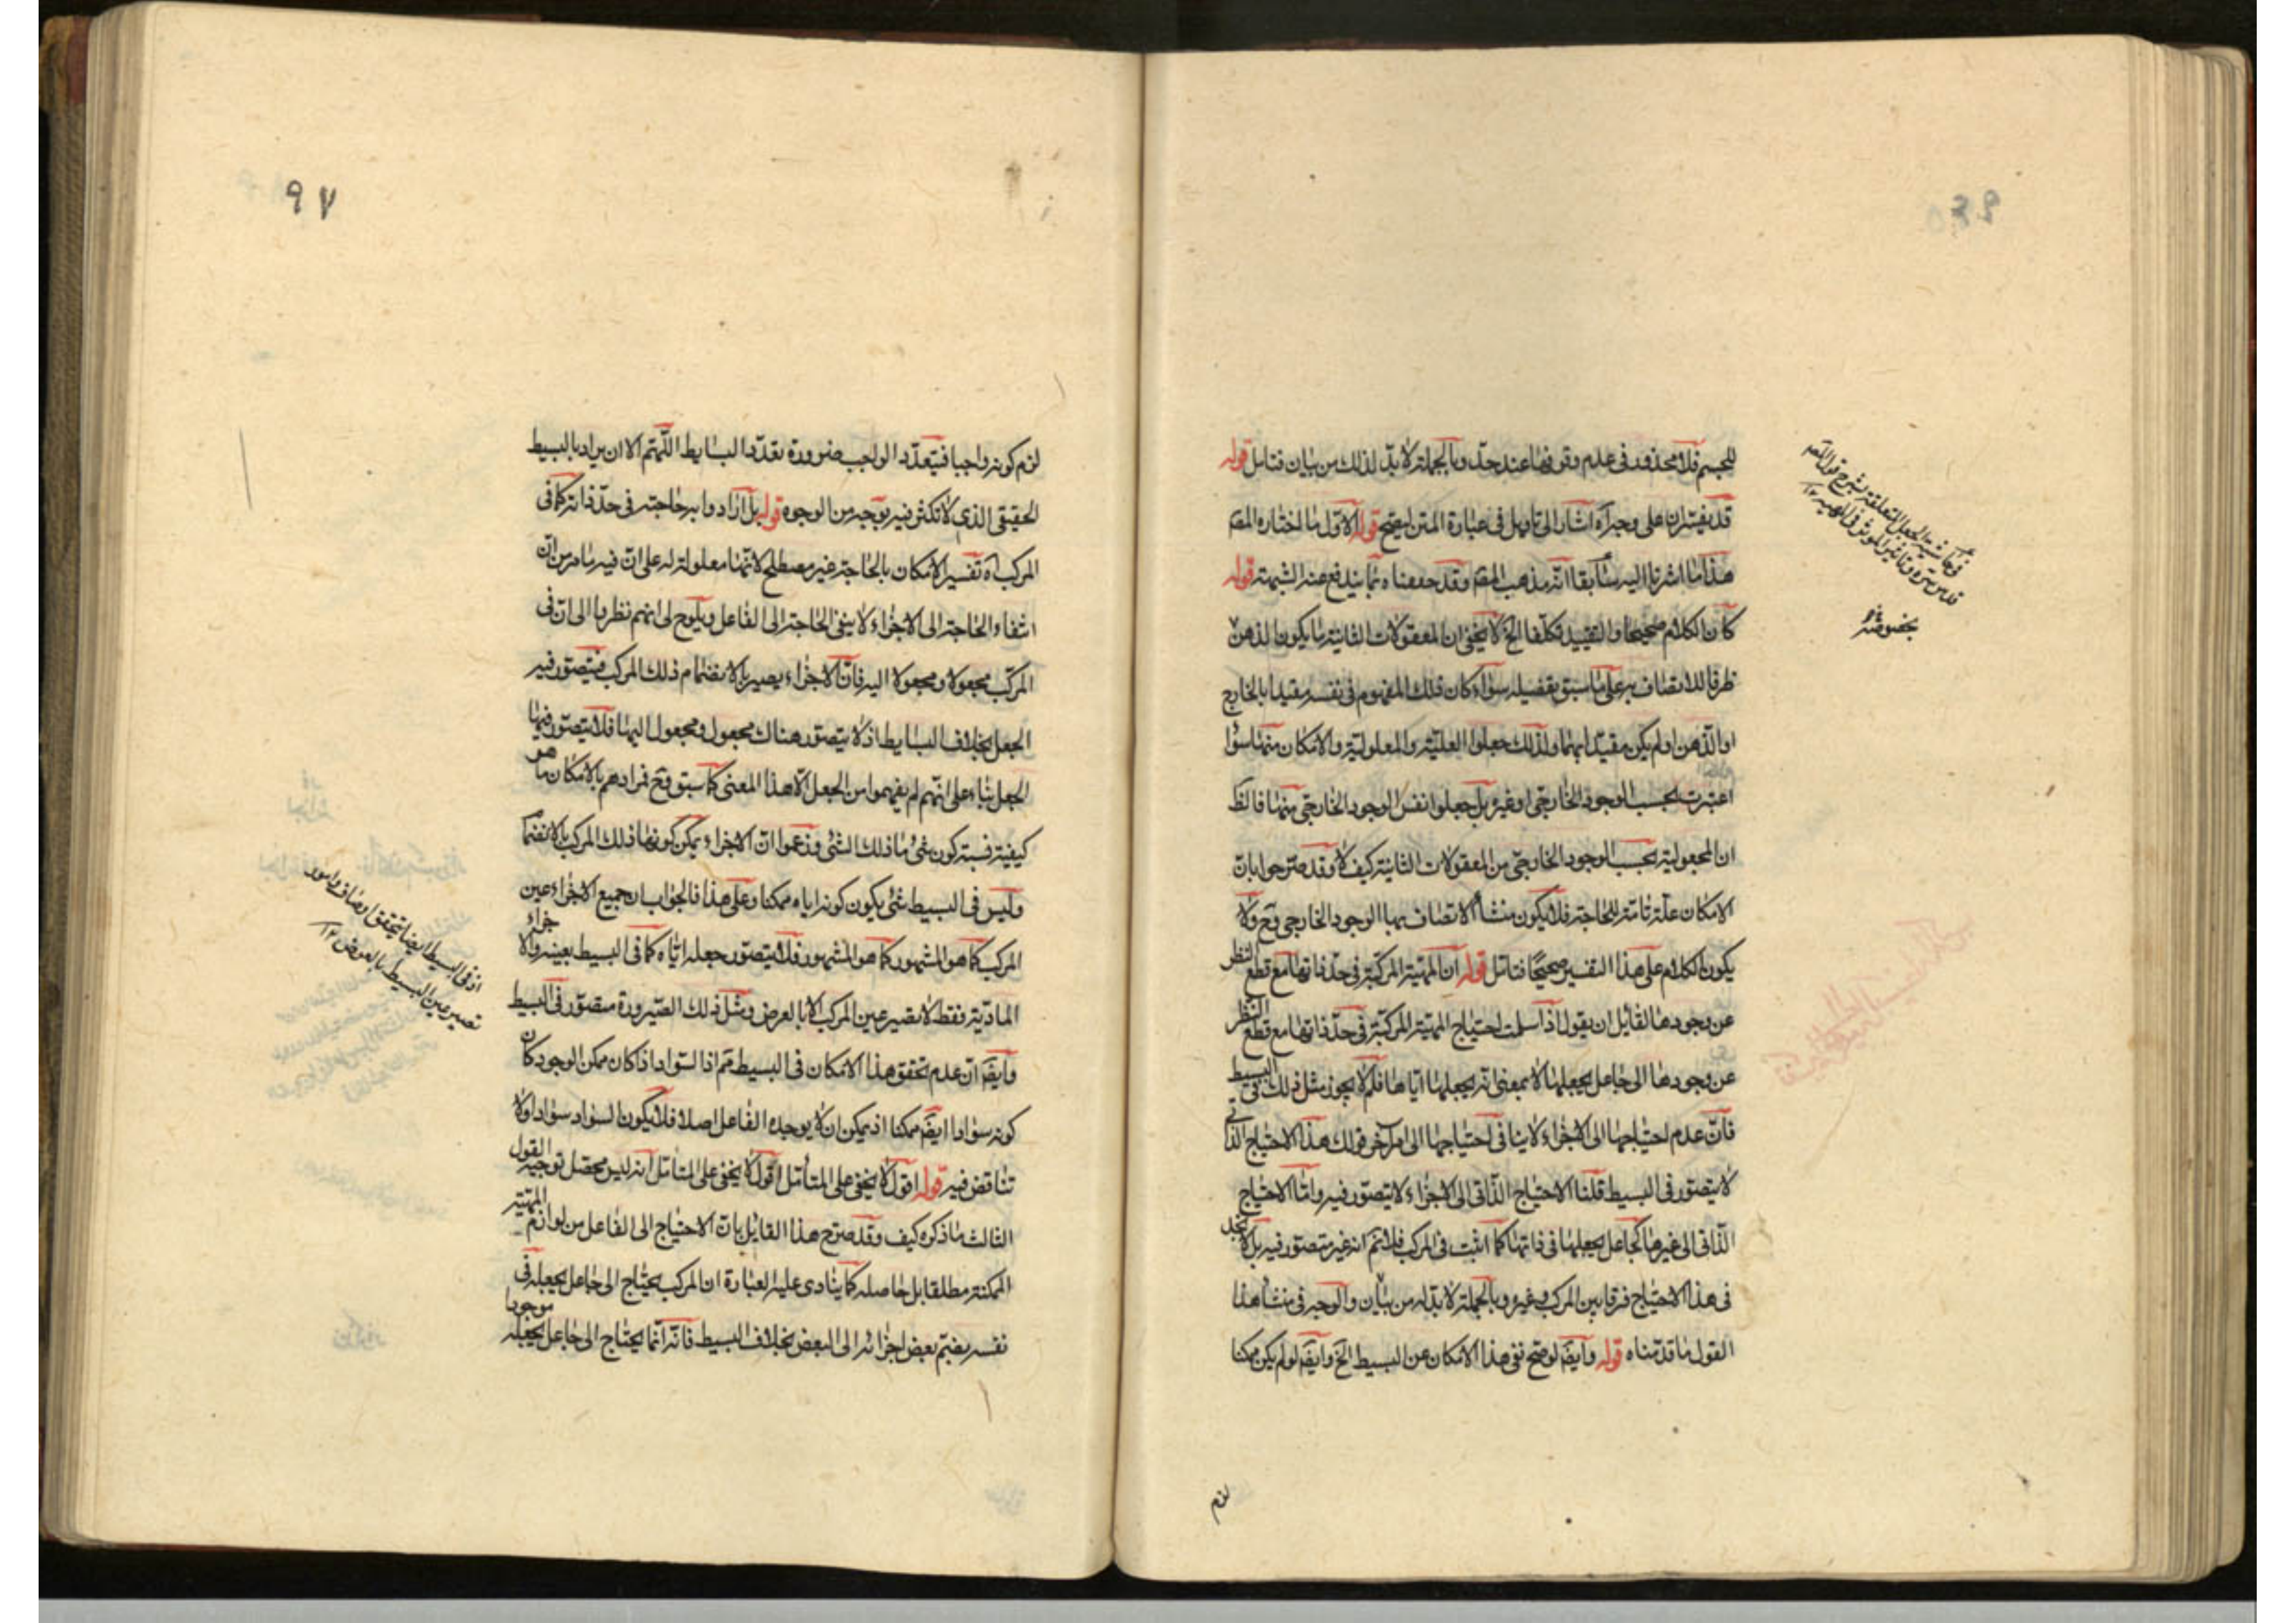 للجسم فلا محذور فى عدم وقوفها عند حدّ وبالجملة لا بدّ لذلك من بيان فتامل قوله
قد يفسّران على وجه آه اشار الى تاويل فى عبارة المتن ليصح قوله الاول ما اختاره المصَ
هذا ما اشرنا اليه سابقا انّه مذهب المصَ وقد حققناه بما يندفع عنه الشبهة قوله
كان الكلام صحيحا والتقييد تكلّفا الخ لا يخفى ان المعقولات الثانية ما يكون الذهن
ظرفا للاتصاف به على ما سبق تفصيله سواء كان ذلك المفهوم فى نفسه مقيدا بالخارج
او الذهن او لم يكن مقيّدا بهما ولذلك جعلوا العليّة والمعلوليّة والامكان منها سوا
اعتبرت بحسب الوجود الخارجى او غيره بل جعلوا نفس الوجود الخارجى منها فالظَ
ان المجعولية بحسب الوجود الخارجى من المعقولات الثانية كيف لا وقد صرّحوا بان
الامكان علّة تامّة للحاجة فلا يكون منشأ الاتصاف بها الوجود الخارجى وح ولا
يكون الكلام على هذا التفسير صحيحًا فتامل قوله ان المهيّة المركبة فى حدّ ذاتها مع قطع النظر
عن وجودها لقائل ان يقول اذا سلمت احتياج المهيّة المركبة فى حدّ ذاتها مع قطع النظر
عن وجودها الى جاعل يجعلها لا بمعنى انه يجعلها اياها فلم لا يجوز مثل ذلك فى البسيط
فانّ عدم احتياجها الى الاجزاء لا ينافى احتياجها الى امر آخر قولك هذا الاحتياج الذاتى
لا يتصوّر فى البسيط قلنا الاحتياج الذّاتى الى الاجزاء لا يتصوّر فيه وامّا الاحتياج
الذّاتى الى غيرها كجاعل يجعلها فى ذاتها كما اثبت فى المركب فلا نم انه غير متصوّر فيه بل لا نجد
فى هذا الاحتياج فرقا بين المركب وغيره وبالجملة لا بدّ له من بيان والوجه فى منشأ هذا
القول ما قدّمناه قوله وايضَ لو صح نفى هذا الامكان عن البسيط الخ وايضَ لو لم يكن ممكنا
لزم
قدس سره
بخصوصه
٩٧
لزم كونه واجبا فيتعدّد الواجب ضرورة تعدّد البسايط اللّهمّ الا ان يراد بالبسيط
الحقيقى الذى لا تكثر فيه بوجه من الوجوه قوله بل ارادوا به حاجته فى حدّ ذاته كما فى
المركب آه تفسير الامكان بالحاجة غير مصطلح لانّها معلولة له على ان فيه ما مرّ من انّ
انتفاء الحاجة الى الاجزاء لا ينفى الحاجة الى الفاعل ويلوح لى انهم نظروا الى ان فى
المركّب مجعولا ومجعولا اليه فانّ الاجزاء يصير بالانضمام ذلك المركب فيتصوّر فيه
الجعل بخلاف البسايط اذ لا يتصوّر هناك مجعول ومجعول اليها فلا يتصوّر فيها
الجعل بناء على انهم لم يفهموا من الجعل الّا هذا المعنى كما سبق وح فمرادهم بالامكان ما هو
كيفية نسبة كون شئ ما ذلك الشئ وزعموا انّ الاجزاء يمكن كونها ذلك المركب بالانضمام
وليس فى البسيط شئ يكون كونه اياه ممكنا وعلى هذا فالجواب ان جميع الاجزاء عين
المركب كما هو المشهور فلا يتصوّر جعله ايّاه كما فى البسيط بعينه والاجزاء
الماديّة فقط لا تصير عين المركب الا بالعرض ومثل ذلك الصيرورة متصوّر فى البسيط
وايضَ انّ عدم تحقق هذا الامكان فى البسيط مَم اذ السّواد اذا كان ممكن الوجود كان
كونه سوادا ايضَ ممكنا اذ يمكن ان لا يوجده الفاعل اصلا فلا يكون السواد سوادا ولا
تناقض فيه قوله اقول لا يخفى على المتأمّل اقول لا يخفى على المتامّل انه ليس محصّل توجيه القول
الثالث ما ذكره كيف وقد صرّح هذا القائل بانّ الاحتياج الى الفاعل من لوازم المهيّة
الممكنة مطلقا بل حاصله كما ينادى عليه العبارة ان المركب يحتاج الى جاعل يجعله فى
نفسه بضمّ بعض اجزائه الى البعض بخلاف البسيط فانّه انّما يحتاج الى جاعل يجعله موجودا
اذ فى البسيط ايضا يتحقق اوصاف وامور
تصير عين البسيط بالعرض ١٢